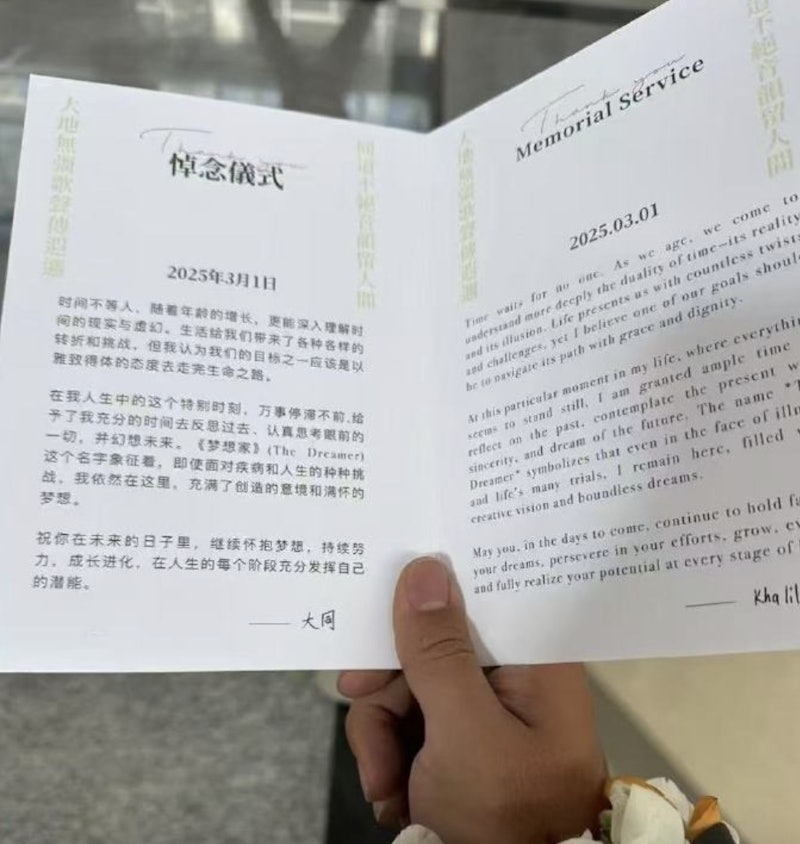 大地無湖歌聲傳遐邇
Thank you
悼念儀式
同道不絕音韻留人間
2025年3月1日
时间不等人，随着年龄的增长，更能深入理解时
间的现实与虚幻。生活给我们带来了各种各样的
转折和挑战，但我认为我们的目标之一应该是以
雅致得体的态度去走完生命之路。
在我人生中的这个特别时刻，万事停滞不前,给
予了我充分的时间去反思过去、认真思考眼前的
一切，并幻想未来。《梦想家》(The Dreamer)
这个名字象征着，即使面对疾病和人生的种种挑
战，我依然在这里，充满了创造的意境和满怀的
梦想。
祝你在未来的日子里，继续怀抱梦想，持续努
力，成长进化，在人生的每个阶段充分发挥自己
的潜能。
—— 大同
大地無湖歌聲傳遐邇
Thank you
Memorial Service
道不絕音韻留人間
2025.03.01
Time waits for no one. As we age, we come to
understand more deeply the duality of time—its reality
and its illusion. Life presents us with countless twists
and challenges, yet I believe one of our goals
be to navigate its path with grace and dignity.
At this particular moment in my life, where
seems to stand still, I am granted ample time
reflect on the past, contemplate the present
sincerity, and dream of the future. The name
Dreamer" symbolizes that even in the face of
and life's many trials, I remain here, filled
creative vision and boundless dreams.
May you, in the days to come, continue to hold
your dreams, persevere in your efforts, grow,
and fully realize your potential at every stage of
—— Khalil